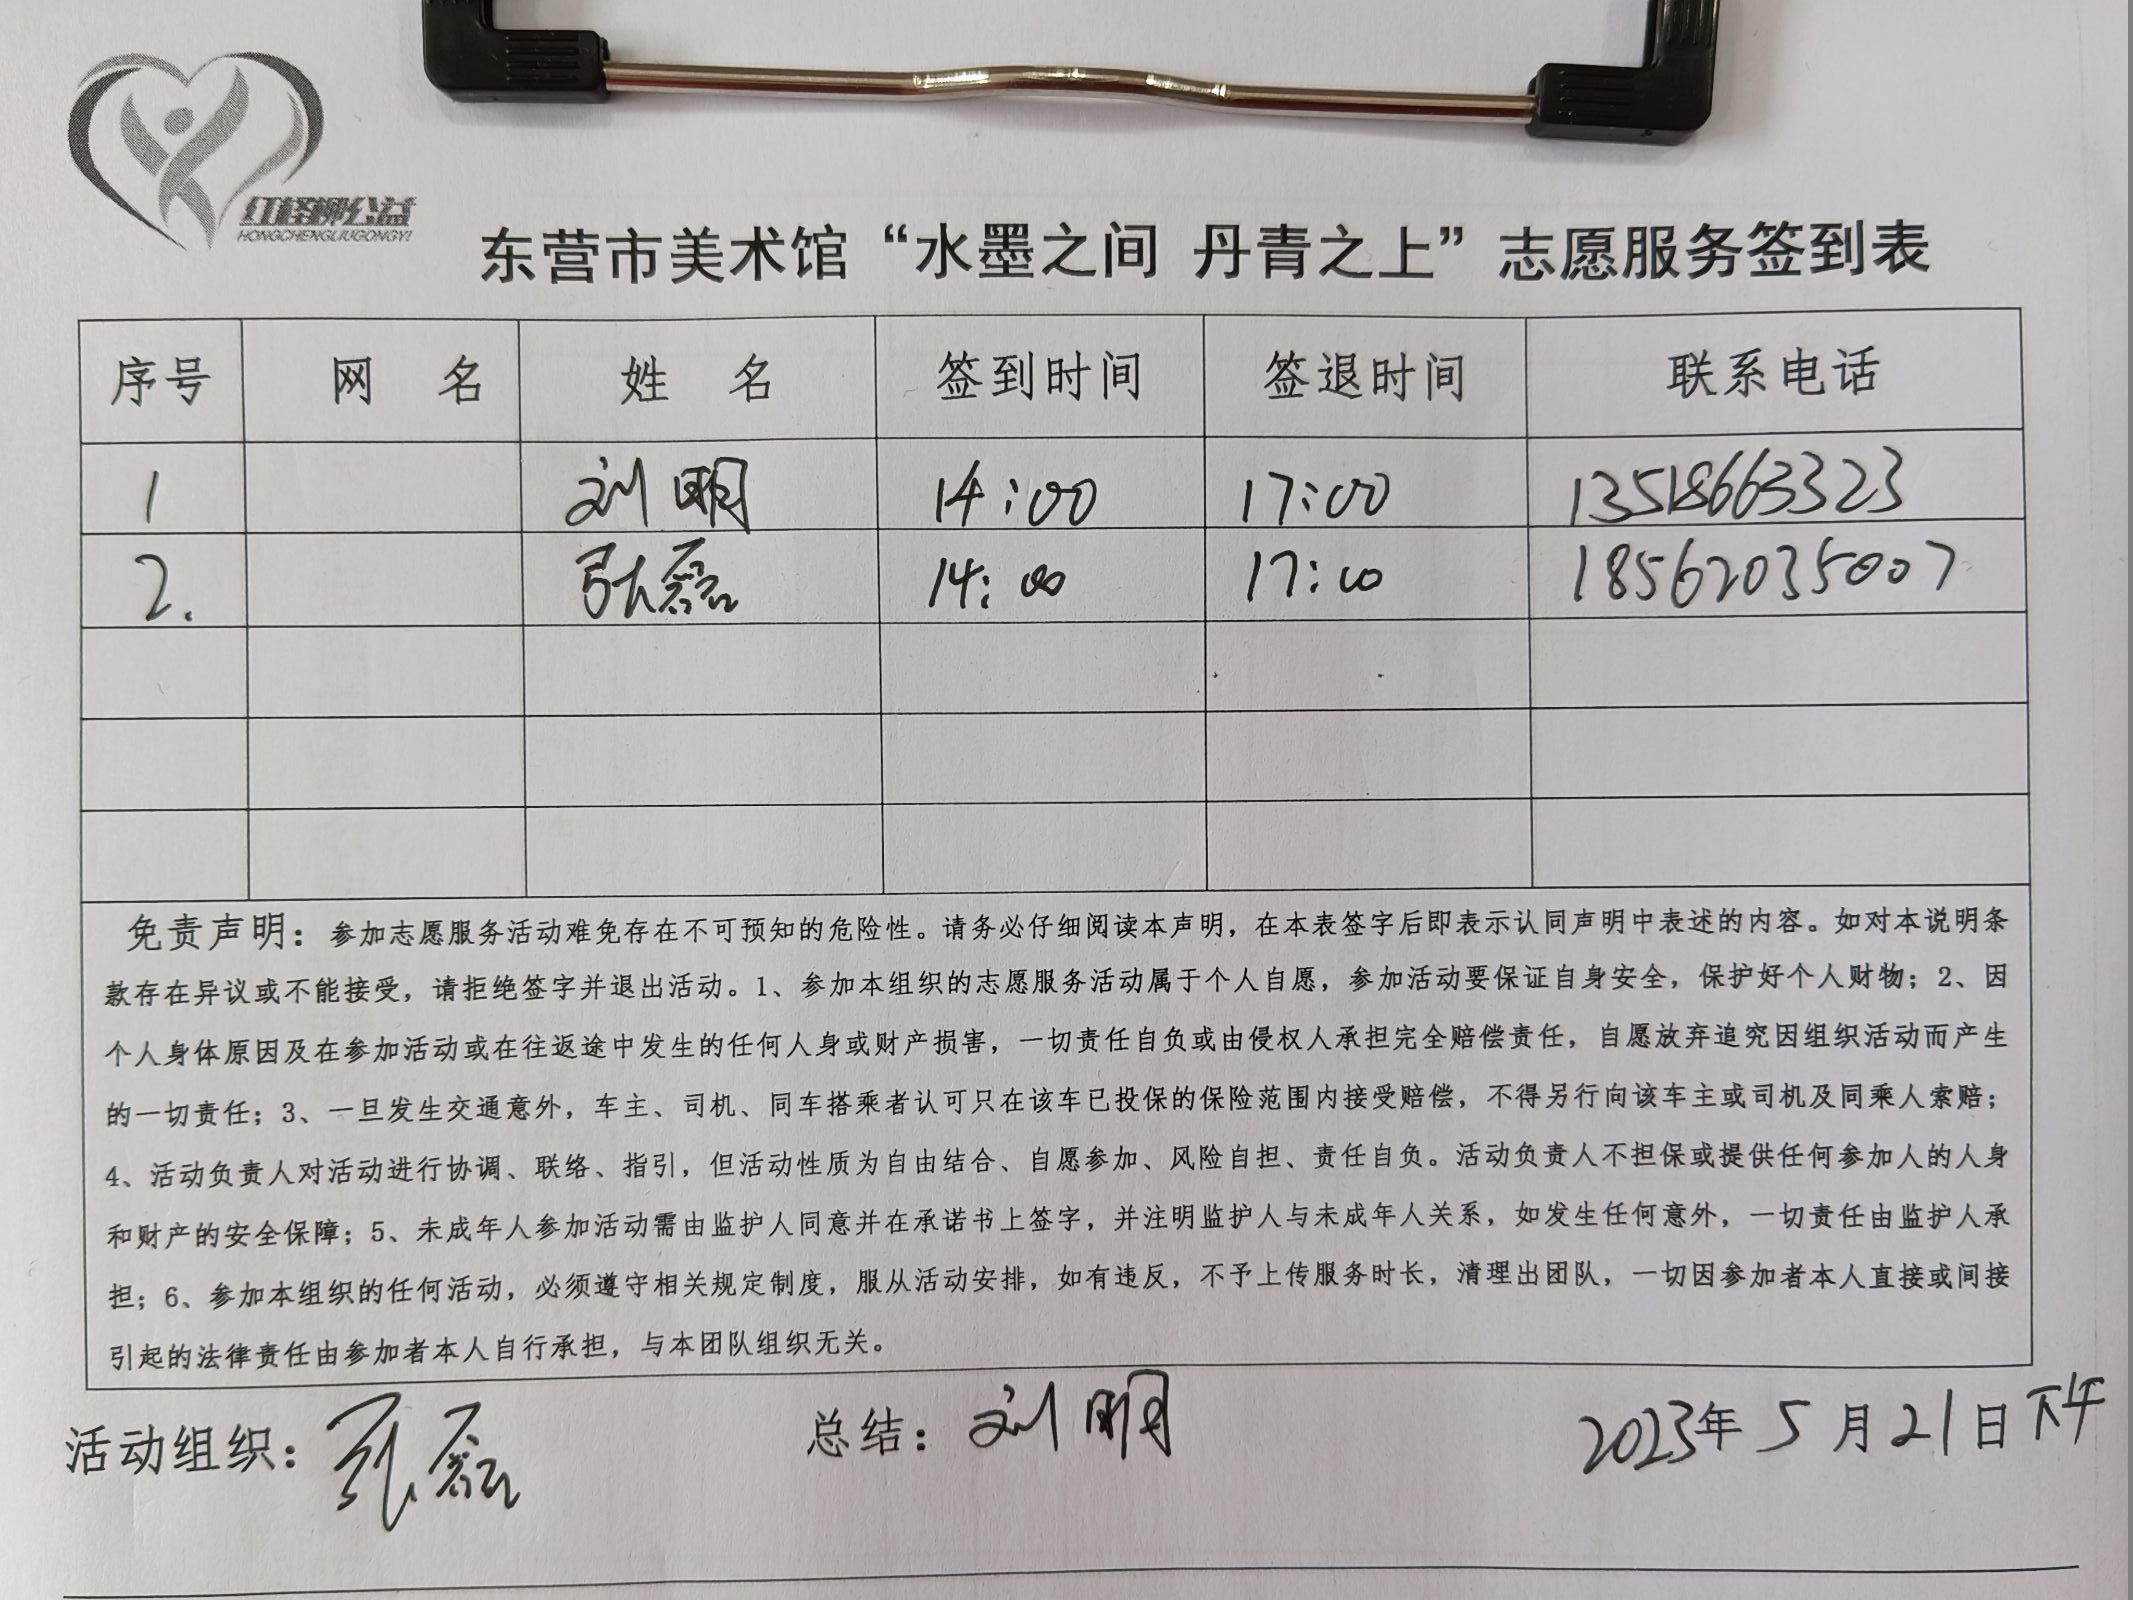 红柽柳公益
HONGCHENGLIUGONGYI
东营市美术馆“水墨之间 丹青之上”志愿服务签到表
序号 网 名 姓 名 签到时间 签退时间 联系电话
1 刘明 14:00 17:00 13518663323
2. 张磊 14:00 17:00 18562035007
免责声明：参加志愿服务活动难免存在不可预知的危险性。请务必仔细阅读本声明，在本表签字后即表示认同声明中表述的内容。如对本说明条
款存在异议或不能接受，请拒绝签字并退出活动。1、参加本组织的志愿服务活动属于个人自愿，参加活动要保证自身安全，保护好个人财物；2、因
个人身体原因及在参加活动或在往返途中发生的任何人身或财产损害，一切责任自负或由侵权人承担完全赔偿责任，自愿放弃追究因组织活动而产生
的一切责任；3、一旦发生交通意外，车主、司机、同车搭乘者认可只在该车已投保的保险范围内接受赔偿，不得另行向该车主或司机及同乘人索赔；
4、活动负责人对活动进行协调、联络、指引，但活动性质为自由结合、自愿参加、风险自担、责任自负。活动负责人不担保或提供任何参加人的人身
和财产的安全保障；5、未成年人参加活动需由监护人同意并在承诺书上签字，并注明监护人与未成年人关系，如发生任何意外，一切责任由监护人承
担；6、参加本组织的任何活动，必须遵守相关规定制度，服从活动安排，如有违反，不予上传服务时长，清理出团队，一切因参加者本人直接或间接
引起的法律责任由参加者本人自行承担，与本团队组织无关。
活动组织：张磊 总结：刘明 2023年5月21日下午